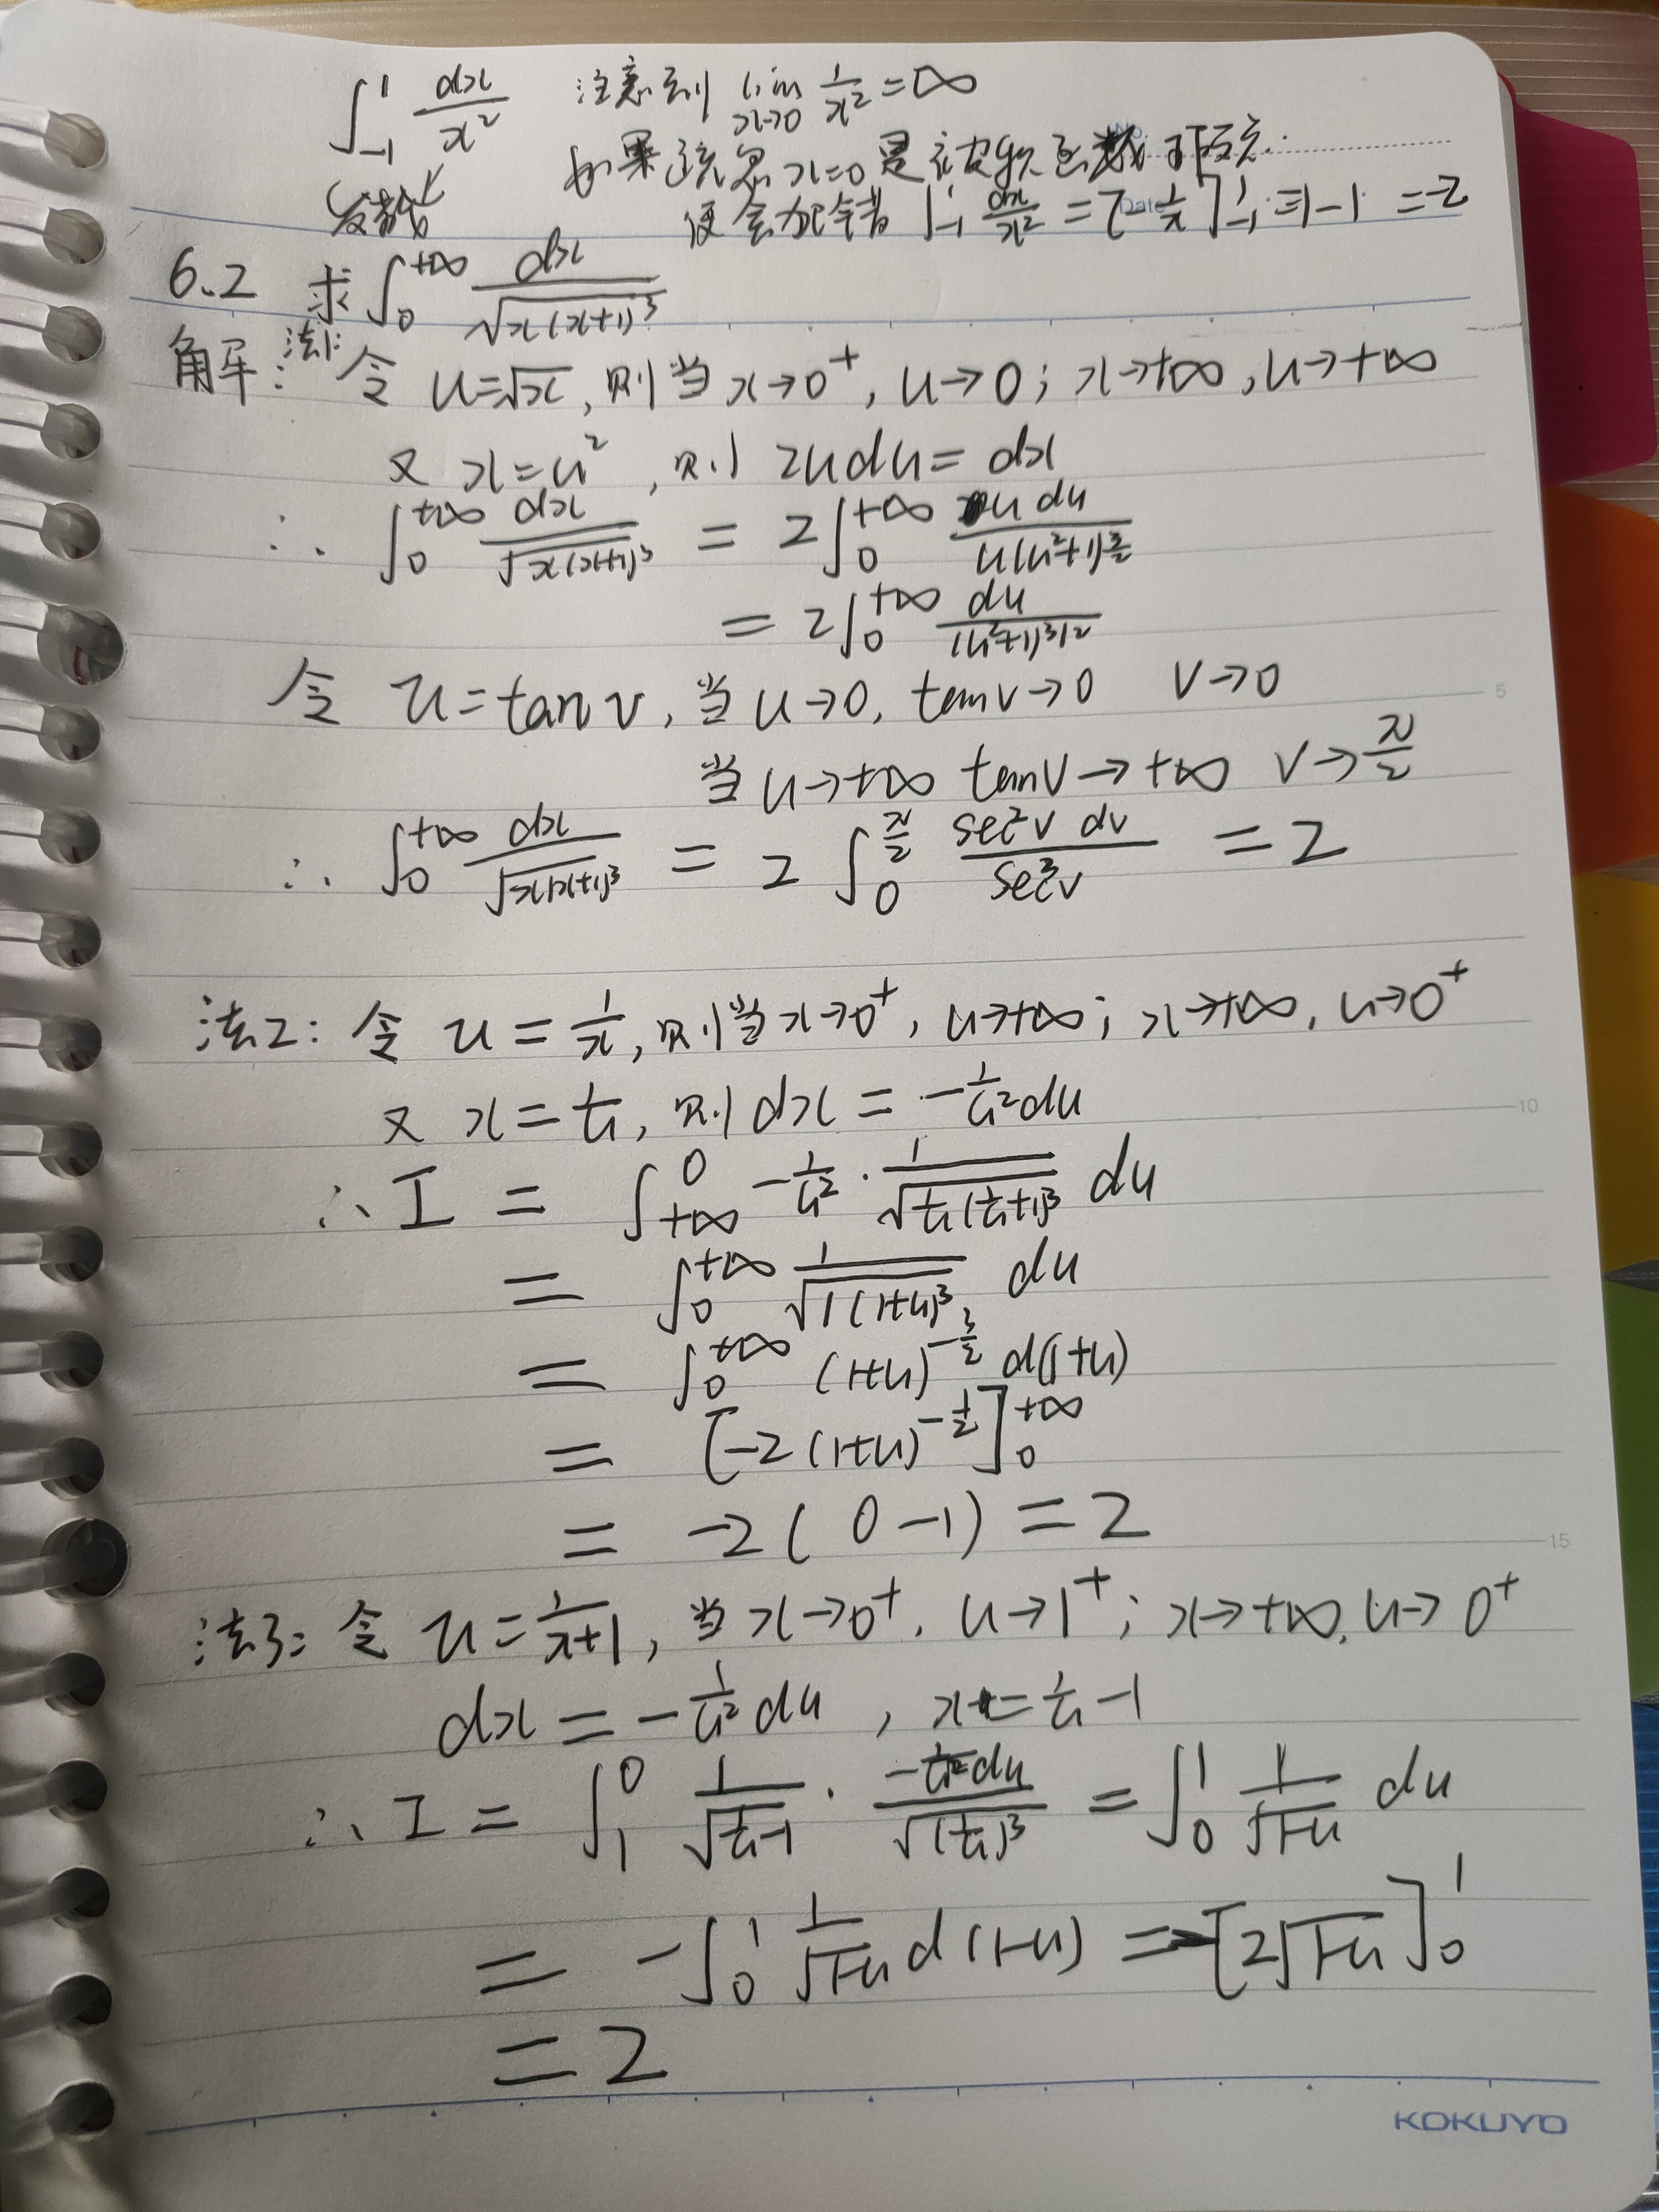 ∫_{-1}^{1} dx/x² 注意到 lim_{x→0} 1/x² = ∞
发散 如果疏忽 x=0 是被积函数瑕点.
便会犯错 ∫_{-1}^{1} dx/x² = [-1/x]_{-1}^{1} = -1-1 = -2
6.2 求 ∫_0^{+∞} dx/√(x(x+1)³)
解: 法1: 令 u=√x, 则当 x→0⁺, u→0; x→+∞, u→+∞
又 x=u², 则 2udu=dx
∴ ∫_0^{+∞} dx/√(x(x+1)³) = 2∫_0^{+∞} u du/(u(u²+1)^{3/2})
= 2∫_0^{+∞} du/(u²+1)^{3/2}
令 u=tan v, 当 u→0, tan v→0 v→0
当 u→+∞ tan v→+∞ v→π/2
∴ ∫_0^{+∞} dx/√(x(x+1)³) = 2∫_0^{π/2} sec²v dv/sec³v = 2
法2: 令 u=1/x, 则当 x→0⁺, u→+∞; x→+∞, u→0⁺
又 x=1/u, 则 dx = -1/u² du
∴ I = ∫_{+∞}^0 -1/u² · 1/√(1/u(1/u+1)³) du
= ∫_0^{+∞} 1/√(1(1+u)³) du
= ∫_0^{+∞} (1+u)^{-3/2} d(1+u)
= [-2(1+u)^{-1/2}]_0^{+∞}
= -2(0-1) = 2
法3: 令 u=1/(x+1), 当 x→0⁺, u→1⁺; x→+∞, u→0⁺
dx = -1/u² du, x = 1/u -1
∴ I = ∫_1^0 1/√(1/u-1) · (-1/u² du)/√((1/u)³) = ∫_0^1 1/√(1-u) du
= -∫_0^1 1/√(1-u) d(1-u) = -[2√(1-u)]_0^1
= 2
KOKUYO